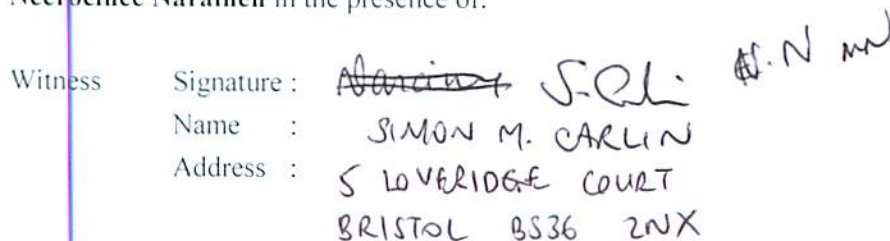 in the presence of:
Witness Signature : S. Carlin N.N MN
Name : SIMON M. CARLIN
Address : 5 LOVERIDGE COURT
BRISTOL BS36 2NX